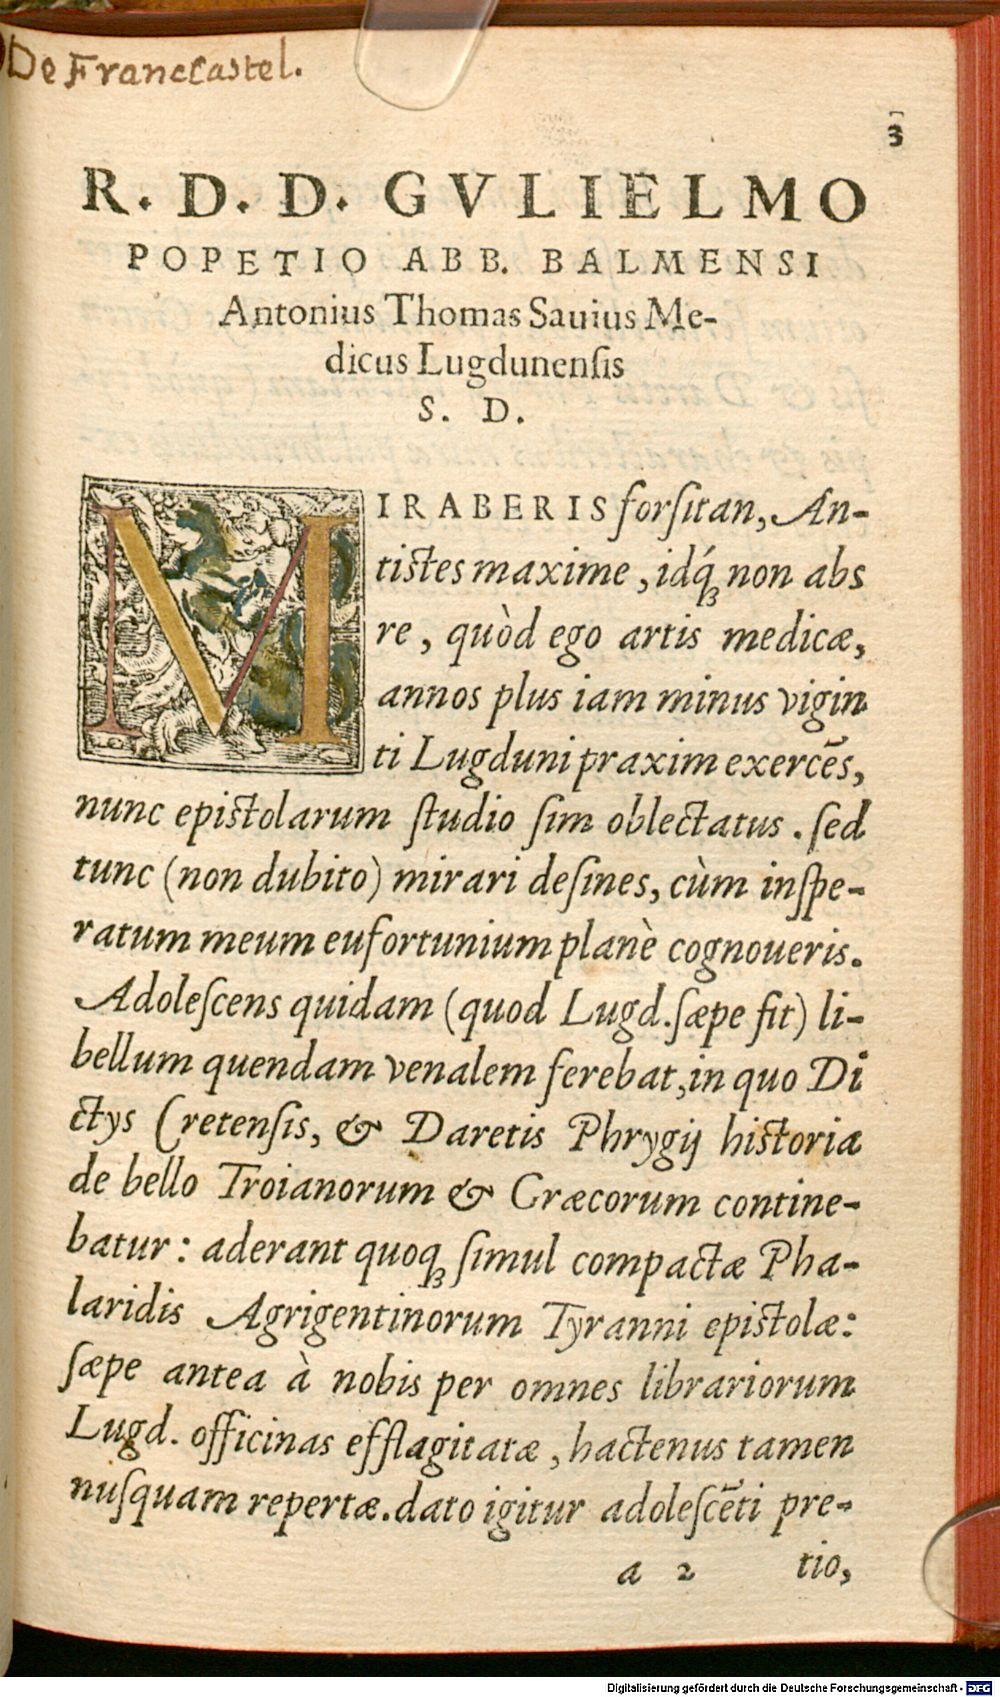 De FrancCastel.
3
R. D. D. GVLIELMO
POPETIO ABB. BALMENSI
Antonius Thomas Sauius Me-
dicus Lugdunenſis
S. D.
MIRABERIS forſitan, An-
tiſtes maxime, idq́ꝫ non abs
re, quòd ego artis medicæ,
annos plus iam minus vigin
ti Lugduni praxim exercẽs,
nunc epiſtolarum ſtudio ſim oblectatus. ſed
tunc (non dubito) mirari deſines, cùm inſpe-
ratum meum eufortunium planè cognoueris.
Adoleſcens quidam (quod Lugd. ſæpe fit) li-
bellum quendam venalem ferebat, in quo Di
ctys Cretenſis, & Daretis Phrygij hiſtoria
de bello Troianorum & Græcorum contine-
batur: aderant quoqꝫ ſimul compactæ Pha-
laridis Agrigentinorum Tyranni epiſtolæ:
ſæpe antea à nobis per omnes librariorum
Lugd. officinas efflagitatæ, hactenus tamen
nuſquam repertæ. dato igitur adoleſcẽti pre-
a 2 tio,
Digitalisierung gefördert durch die Deutsche Forschungsgemeinschaft - DFG